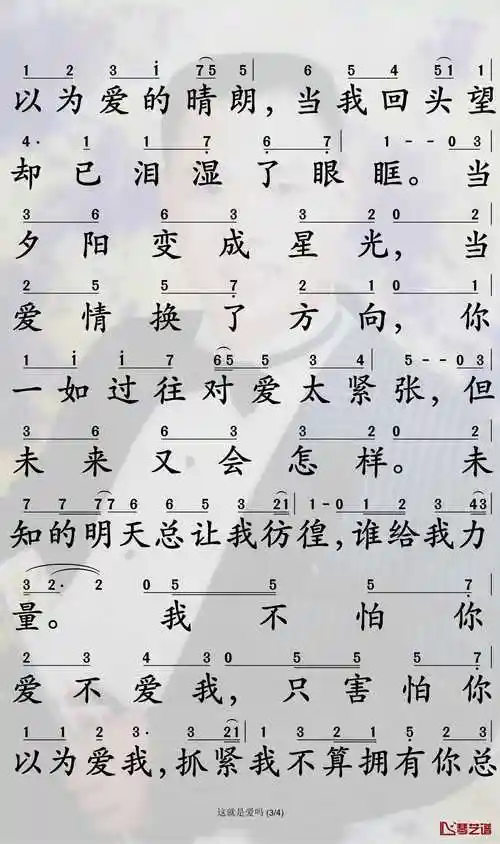 1 2 3 i 75 5 | 6 5 4 51 |
以为爱的晴朗,当我回头望
4· 1 1 7 6 7 | 1 - - 0 3 |
却已泪湿了眼眶。当
3 6 6 3 3 2 | 0 2 |
夕阳变成星光,当
2 5 5 7 2 1 | 0 1 |
爱情换了方向,你
1 i i 7 65 5 3 4 | 5 - - 0 3 |
一如过往对爱太紧张,但
3 6 6 3 3 2 | 0 2 |
未来又会怎样。未
7 7 77 6 6 5 3 21 | 1 - 0 1 2 3 43 |
知的明天总让我彷徨,谁给我力
3 2· 2 | 0 5 5 5 7
量。我不怕你
2 3 4 3 0 5 5 5 7 |
爱不爱我,只害怕你
1 1 2 3· 3 21 | 1 3 2 1 5 2 3 |
以为爱我,抓紧我不算拥有你总
这就是爱吗 (3/4)
琴艺谱